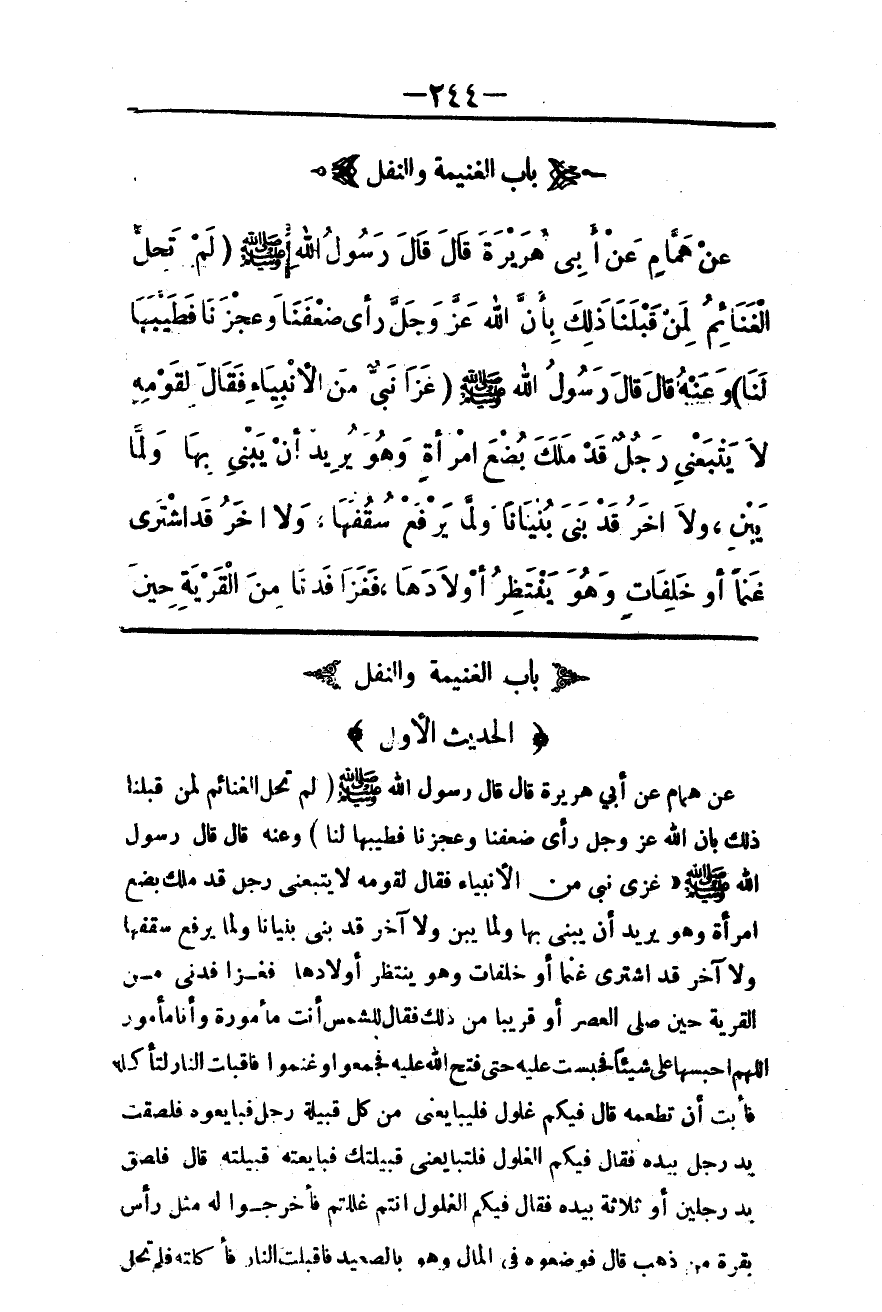 —٢٤٤—
باب الغنيمة والنفل
عَنْ هَمَّامٍ عَنْ أَبِى هُرَيْرَةَ قَالَ قَالَ رَسُولُ اللهِ ﷺ ( لَمْ تَحِلَّ
الْغَنَائِمُ لِمَنْ قَبْلَنَا ذَلِكَ بِأَنَّ اللهَ عَزَّ وَجَلَّ رأى ضَعْفَنَا وَعجْزَنَا فَطَيَّبَهَا
لَنَا) وَعَنْهُ قَالَ قَالَ رَسُولُ اللهِ ﷺ ( غَزَا نَبِىٌّ مِنَ الْأَنْبِيَاءِ فَقَالَ لِقَوْمِهِ
لاَ يَتْبَعْنِي رَجُلٌ قَدْ مَلَكَ بُضْعَ امْرأةٍ وَهُوَ يُرِيدُ أنْ يَبْنِي بِهَا وَلَمَّا
يَبْنِ ، ولاَ اخَرُ قَدْ بَنَى بُنْيَانًا وَلَمَّا يَرْفَعْ سُقُفَهَا ، وَلا اخَرُ قَد اشْتَرَى
غَنَمًا أو خَلِفَاتٍ وَهُوَ يَنْتَظِرُ أوْلاَدَهَا ، فَغَزَا فَدنَا مِنَ الْقَرْيَةِ حِينَ
باب الغنيمة والنفل
﴿ الحديث الأول ﴾
عن همام عن أبي هريرة قال قال رسول الله ﷺ ( لم تحل الغنائم لمن قبلنا
ذلك بان الله عز وجل رأى ضعفنا وعجزنا فطيبها لنا ) وعنه قال قال رسول
الله ﷺ « غزى نبي من الأنبياء فقال لقومه لا يتبعنى رجل قد ملك بضع
امرأة وهو يريد أن يبنى بها ولما يبن ولا آخر قد بنى بنيانا ولما يرفع سقفها
ولا آخر قد اشترى غنما أو خلفات وهو ينتظر أولادها فغزا فدنى من
القرية حين صلى العصر أو قريبا من ذلك فقال للشمس أنت مأمورة وأنا مأمور
اللهم احبسها على شيئاً فحبست عليه حتى فتح الله عليه فجمعوا وغنموا فاقبلت النار لتأكله
فأبت أن تطعمه قال فيكم غلول فليبايعنى من كل قبيلة رجل فبايعوه فلصقت
يد رجل بيده فقال فيكم الغلول فلتبايعنى قبيلتك فبايعته قبيلته قال فلصق
يد رجلين أو ثلاثة بيده فقال فيكم الغلول انتم غللتم فأخرجوا له مثل رأس
بقرة من ذهب قال فوضعوه فى المال وهو بالصعيد فاقبلت النار فأكلته فلم تحل